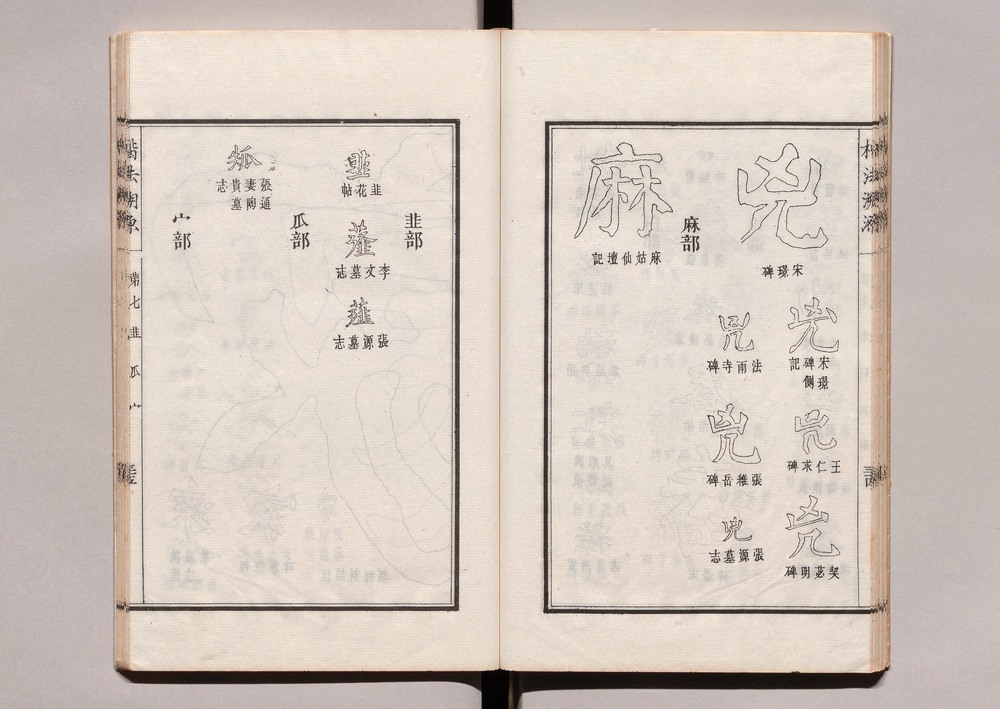 兇
宋璟碑
兇
宋璟碑側記
兇
王仁求碑
兇
契苾明碑
兇
法雨寺碑
兇
張稚岳碑
兇
張源墓志
麻部
麻
麻姑仙壇記
韭部
韭
韭花帖
韮
李文墓志
韮
張源墓志
瓜部
瓠
張通妻陶貴墓志
宀部
楷法溯源
第七 韭 瓜 宀